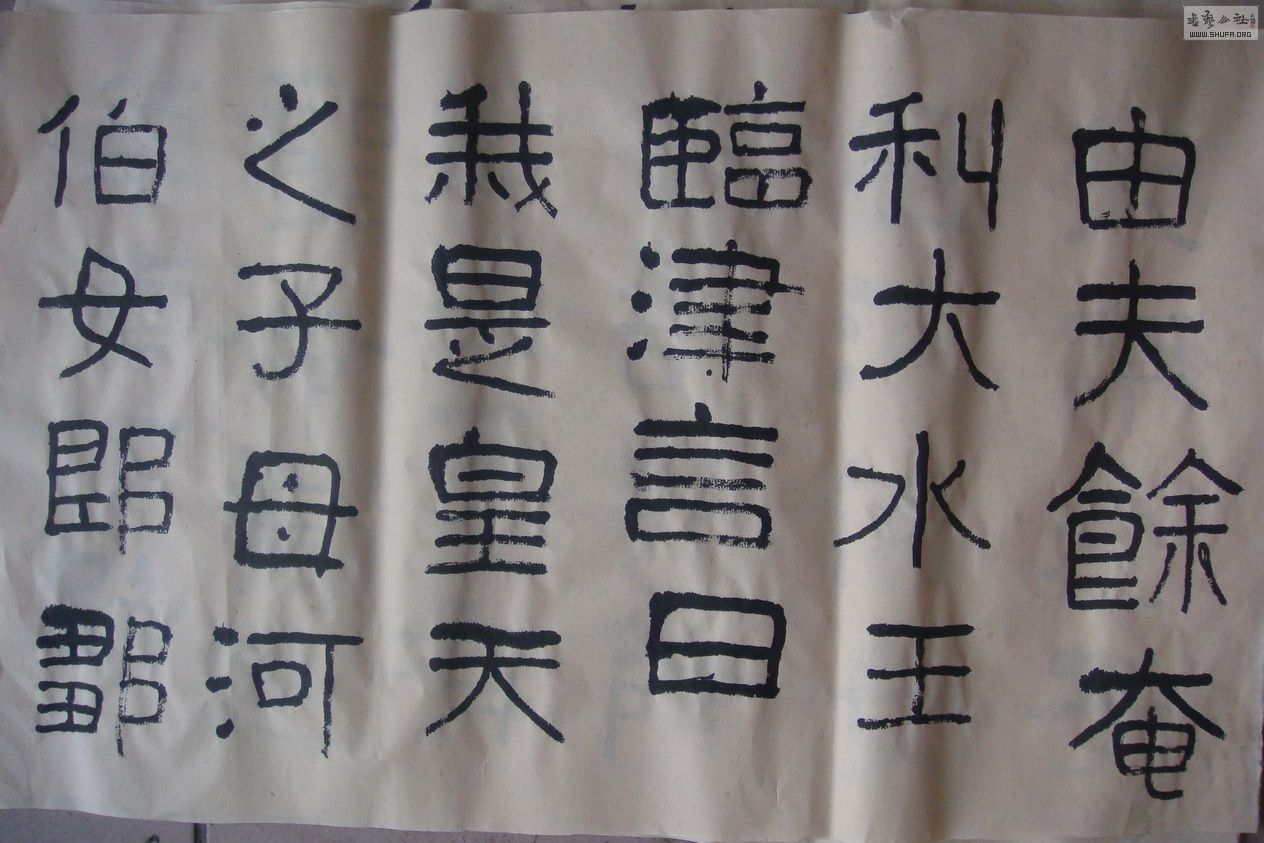 由夫餘奄
利大水王
臨津言曰
我是皇天
之子母河
伯女郎鄒
書藝公社
WWW.SHUFA.ORG